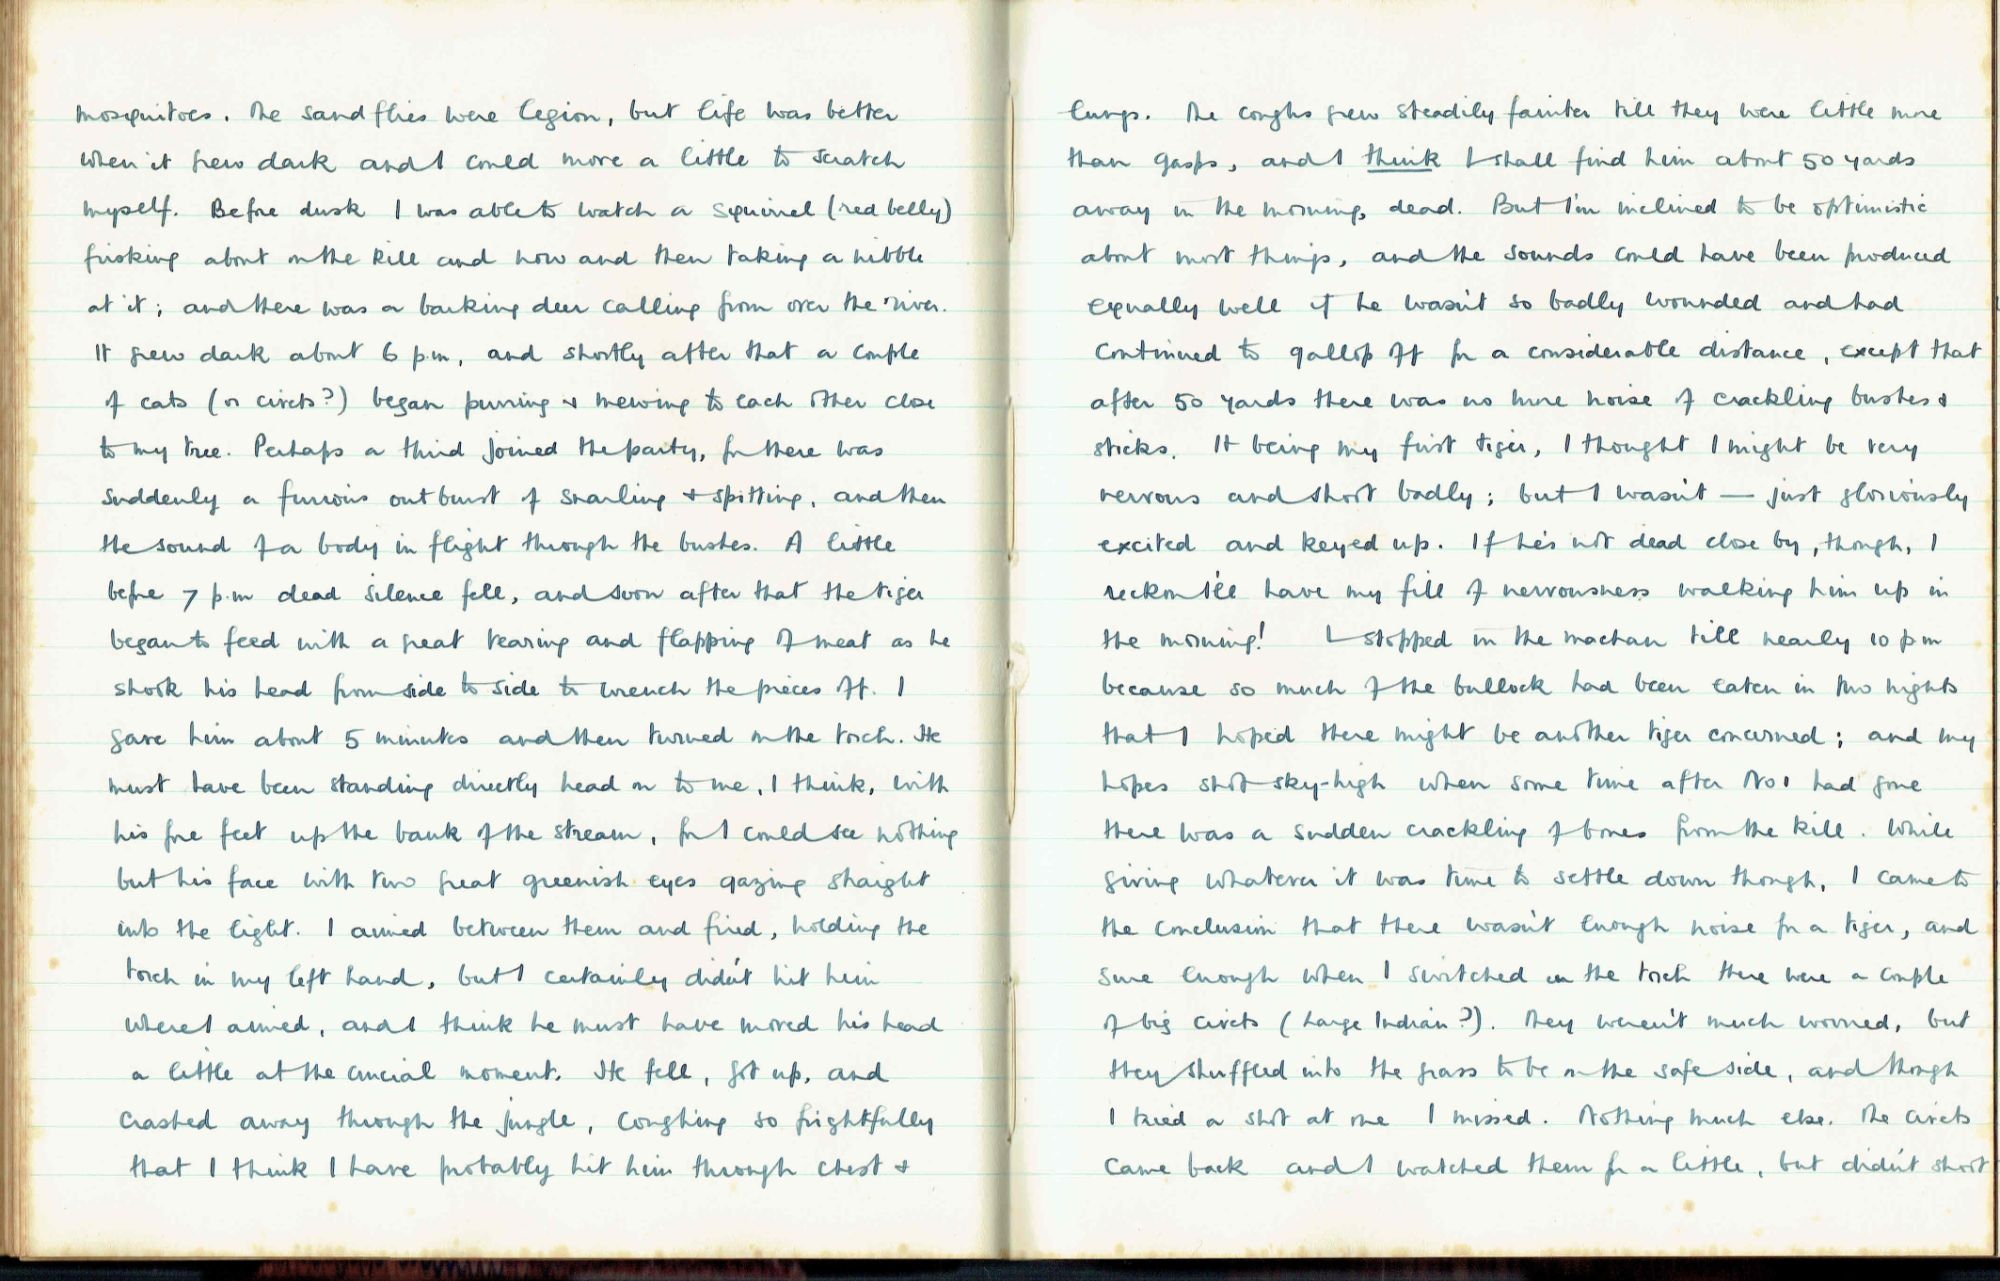 mosquitoes. The sandflies were legion, but life was better
when it grew dark and I could move a little to scratch
myself. Before dusk I was able to watch a squirrel (red belly)
frisking about on the kill and now and then taking a nibble
at it; and there was a barking deer calling from over the river.
It grew dark about 6 p.m, and shortly after that a couple
of cats (or civets?) began purring & mewing to each other close
to my tree. Perhaps a third joined the party, for there was
suddenly a furious outburst of snarling & spitting, and then
the sound of a body in flight through the bushes. A little
before 7 p.m dead silence fell, and soon after that the tiger
began to feed with a great tearing and flapping of meat as he
shook his head from side to side to wrench the pieces off. I
gave him about 5 minutes and then turned on the torch. He
must have been standing directly head on to me, I think, with
his fore feet up the bank of the stream, for I could see nothing
but his face with two great greenish eyes gazing straight
into the light. I aimed between them and fired, holding the
torch in my left hand, but I certainly didn't hit him
where I aimed, and I think he must have moved his head
a little at the crucial moment. He fell, got up, and
crashed away through the jungle, coughing so frightfully
that I think I have probably hit him through chest &
lungs. The coughs grew steadily fainter till they were little more
than gasps, and I think I shall find him about 50 yards
away in the morning, dead. But I'm inclined to be optimistic
about most things, and the sounds could have been produced
equally well if he wasn't so badly wounded and had
continued to gallop off for a considerable distance, except that
after 50 yards there was no more noise of crackling bushes &
sticks. It being my first tiger, I thought I might be very
nervous and shoot badly; but I wasn't — just gloriously
excited and keyed up. If he's not dead close by, though, I
reckon I'll have my fill of nervousness walking him up in
the morning! I stopped in the machan till nearly 10 p m
because so much of the bullock had been eaten in two nights
that I hoped there might be another tiger concerned; and my
hopes shot sky-high when some time after No 1 had gone
there was a sudden crackling of bones from the kill. While
giving whatever it was time to settle down though, I came to
the conclusion that there wasn't enough noise for a tiger, and
sure enough when I switched on the torch there were a couple
of big civets (Large Indian?). They weren't much worried, but
they shuffled into the grass to be on the safe side, and though
I tried a shot at one I missed. Nothing much else. The civets
came back and I watched them for a little, but didn't shoot